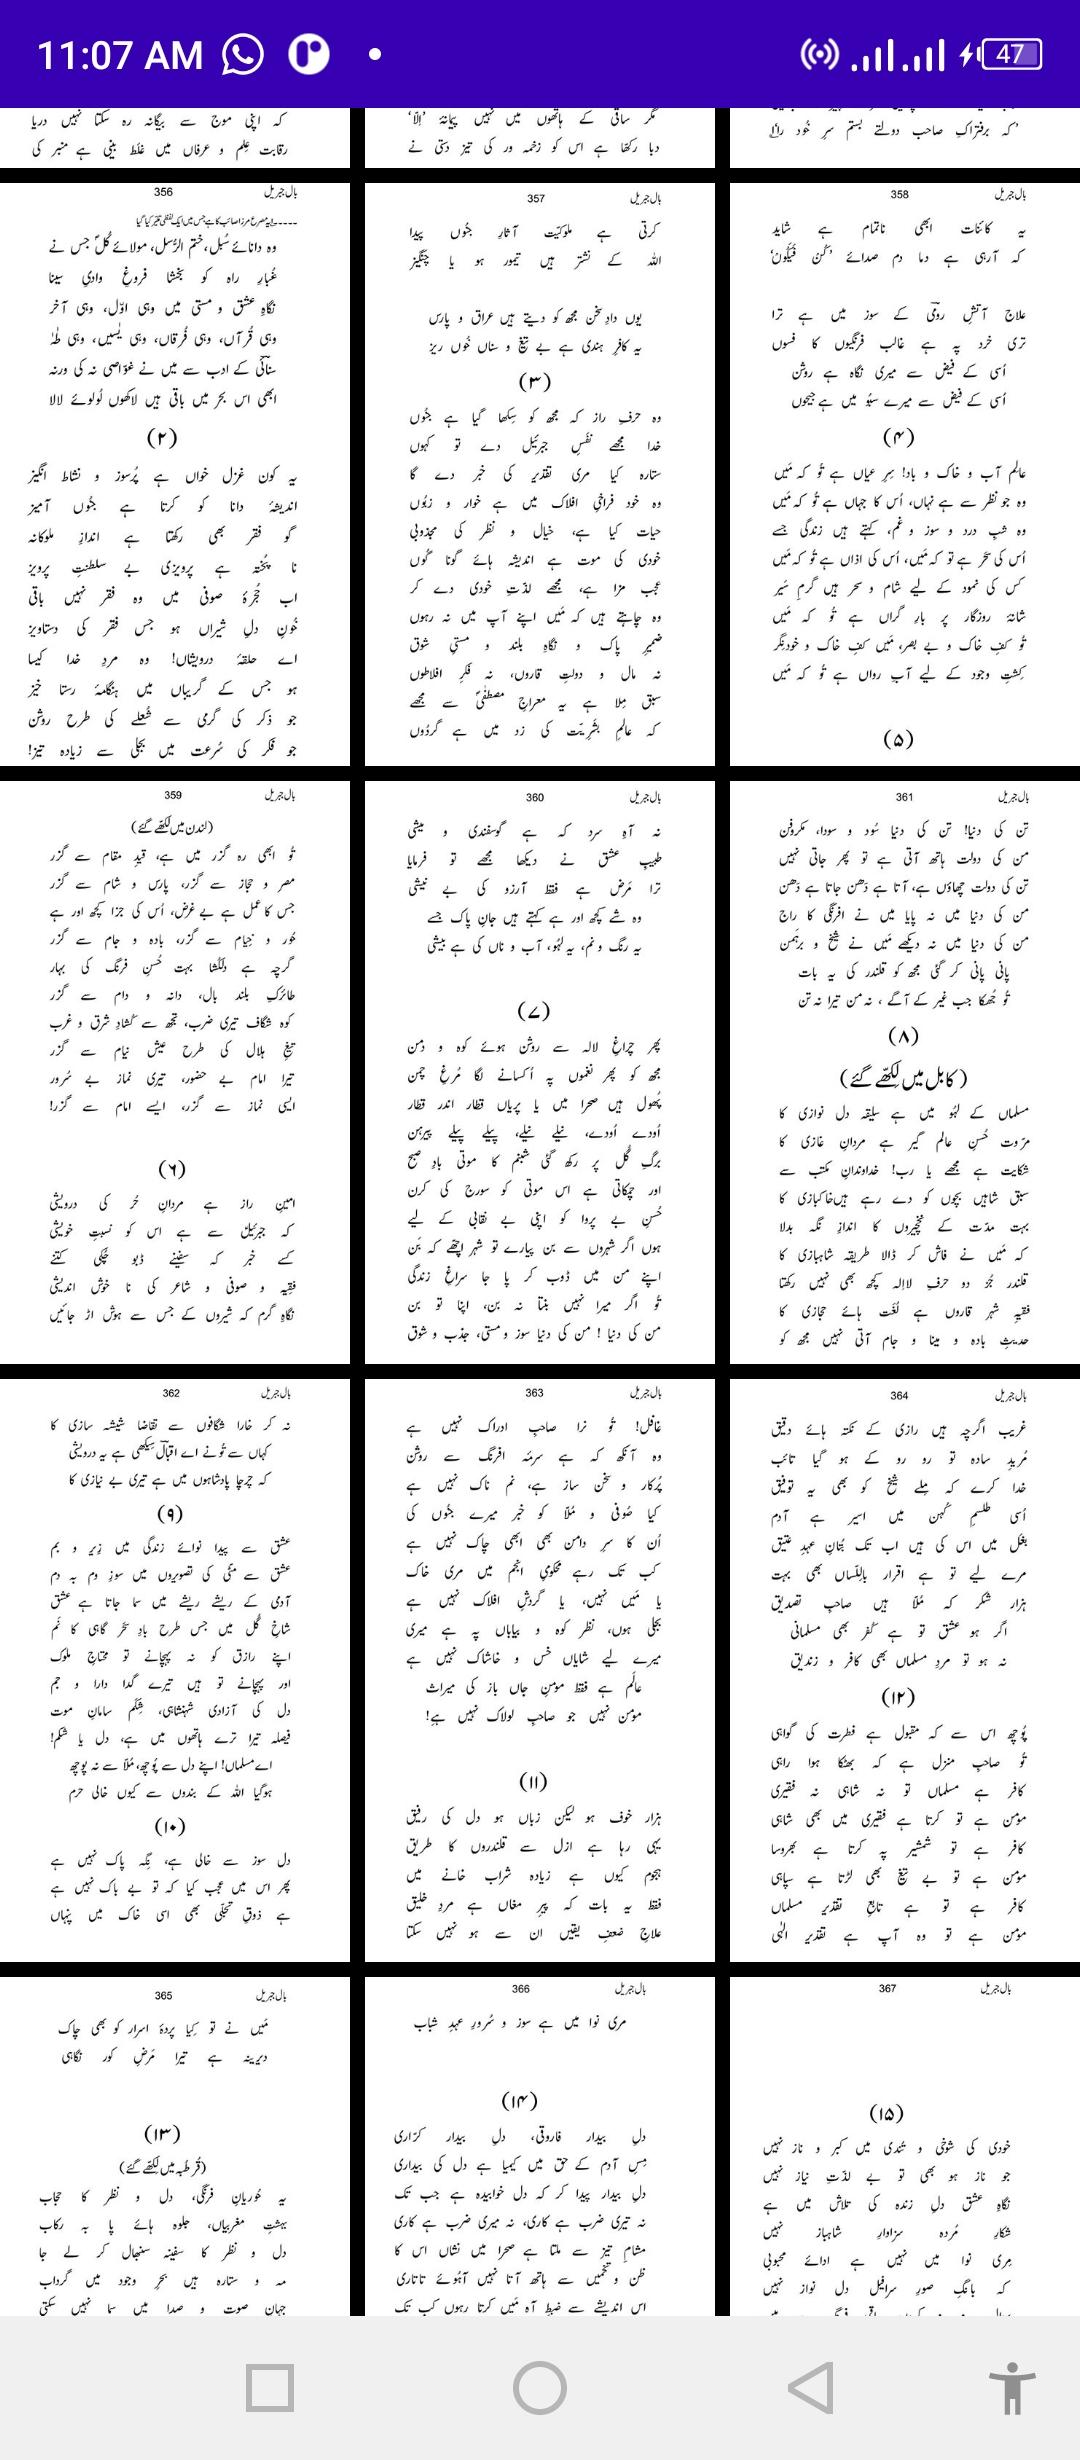 11:07 AM
47
کہ اپنی موج سے بیگانہ رہ سکتا نہیں دریا
رقابت علم و عرفاں میں غلط بینی ہے منبر کی
مگر ساقی کے ہاتھوں میں نہیں پیمانۂ 'اِلّا'
دبا رکھّا ہے اس کو زخمہ ور کی تیز دستی نے
'کہ برفتراکِ صاحب دولتے بستم سرِ خُود را'
356 بالِ جبریل
یہ مصرع مرزا صائب کا ہے جس میں ایک لفظی تغیّر کیا گیا
وہ دانائے سُبل، ختم الرُّسل، مولائے کُلؐ جس نے
غُبارِ راہ کو بخشا فروغِ وادیِ سینا
نگاہِ عشق و مستی میں وہی اوّل، وہی آخر
وہی قُرآں، وہی فُرقاں، وہی یٰسیں، وہی طٰہٰ
سنائیؔ کے ادب سے میں نے غوّاصی نہ کی ورنہ
ابھی اس بحر میں باقی ہیں لاکھوں لُولوئے لالا
(۲)
یہ کون غزل خواں ہے پُرسوز و نشاط انگیز
اندیشۂ دانا کو کرتا ہے جنُوں آمیز
گو فقر بھی رکھتا ہے اندازِ ملوکانہ
نا پختہ ہے پرویزی بے سلطنتِ پرویز
اب حُجرۂ صوفی میں وہ فقر نہیں باقی
خُونِ دلِ شیراں ہو جس فقر کی دستاویز
اے حلقۂ درویشاں! وہ مردِ خدا کیسا
ہو جس کے گریباں میں ہنگامۂ رستا خیز
جو ذکر کی گرمی سے شُعلے کی طرح روشن
جو فکر کی سُرعت میں بجلی سے زیادہ تیز!
357 بالِ جبریل
کرتی ہے ملوکیّت آثارِ جنُوں پیدا
اللہ کے نشتر ہیں تیمور ہو یا چنگیز
یوں دادِ سخن مجھ کو دیتے ہیں عراق و پارس
یہ کافرِ ہندی ہے بے تیغ و سناں خُوں ریز
(۳)
وہ حرفِ راز کہ مجھ کو سِکھا گیا ہے جنُوں
خدا مجھے نفَسِ جبرئیل دے تو کہوں
ستارہ کیا مری تقدیر کی خبر دے گا
وہ خود فراخیِ افلاک میں ہے خوار و زبُوں
حیات کیا ہے، خیال و نظر کی مجذوبی
خودی کی موت ہے اندیشہ ہائے گونا گوں
عجب مزا ہے، مجھے لذّتِ خودی دے کر
وہ چاہتے ہیں کہ مَیں اپنے آپ میں نہ رہوں
ضمیرِ پاک و نگاہِ بلند و مستیِ شوق
نہ مال و دولتِ قاروں، نہ فکرِ افلاطوں
سبق مِلا ہے یہ معراجِ مصطفیٰؐ سے مجھے
کہ عالمِ بشَرِیّت کی زد میں ہے گردُوں
358 بالِ جبریل
یہ کائنات ابھی ناتمام ہے شاید
کہ آرہی ہے دما دم صدائے 'کُنْ فَیَکُوں'
علاج آتشِ رومیؔ کے سوز میں ہے ترا
تری خرد پہ ہے غالب فرنگیوں کا فسوں
اُسی کے فیض سے میری نگاہ ہے روشن
اُسی کے فیض سے میرے سبُو میں ہے جیحوں
(۴)
عالمِ آب و خاک و باد! سِرِّ عیاں ہے تُو کہ مَیں
وہ جو نظر سے ہے نہاں، اُس کا جہاں ہے تُو کہ مَیں
وہ شبِ درد و سوز و غم، کہتے ہیں زندگی جسے
اُس کی سحَر ہے تو کہ مَیں، اُس کی اذاں ہے تُو کہ مَیں
کس کی نمود کے لیے شام و سحر ہیں گرمِ سَیر
شانۂ روزگار پر بارِ گراں ہے تُو کہ مَیں
تُو کفِ خاک و بے بصر، مَیں کفِ خاک و خودنِگر
کِشتِ وجود کے لیے آبِ رواں ہے تُو کہ مَیں
(۵)
359 بالِ جبریل
(لندن میں لِکھّے گئے)
تُو ابھی رہ گزر میں ہے، قیدِ مقام سے گزر
مصر و حجاز سے گزر، پارس و شام سے گزر
جس کا عمل ہے بے غرض، اُس کی جزا کچھ اور ہے
حُور و خِیام سے گزر، بادہ و جام سے گزر
گرچہ ہے دلکُشا بہت حُسنِ فرنگ کی بہار
طائرکِ بلند بال، دانہ و دام سے گزر
کوہ شگاف تیری ضرب، تجھ سے کُشادِ شرق و غرب
تیغِ ہلال کی طرح عیش نیام سے گزر
تیرا امام بے حضور، تیری نماز بے سُرور
ایسی نماز سے گزر، ایسے امام سے گزر!
(۶)
امینِ راز ہے مردانِ حُر کی درویشی
کہ جبرئیلؑ سے ہے اس کو نسبتِ خویشی
کسے خبر کہ سفینے ڈبو چکی کتنے
فقیہ و صوفی و شاعر کی نا خوش اندیشی
نگاہِ گرم کہ شیروں کے جس سے ہوش اڑ جائیں
360 بالِ جبریل
نہ آہِ سرد کہ ہے گوسفندی و میشی
طبیبِ عشق نے دیکھا مجھے تو فرمایا
ترا مَرض ہے فقط آرزو کی بے نیشی
وہ شے کچھ اور ہے کہتے ہیں جانِ پاک جسے
یہ رنگ و نم، یہ لہُو، آب و ناں کی ہے بیشی
(۷)
پھر چراغِ لالہ سے روشن ہوئے کوہ و دمن
مجھ کو پھر نغموں پہ اُکسانے لگا مُرغِ چمن
پھُول ہیں صحرا میں یا پریاں قطار اندر قطار
اُودے اُودے، نیلے نیلے، پیلے پیلے پیرہن
برگِ گُل پر رکھ گئی شبنم کا موتی بادِ صبح
اور چمکاتی ہے اس موتی کو سورج کی کرن
حُسنِ بے پروا کو اپنی بے نقابی کے لیے
ہوں اگر شہروں سے بن پیارے تو شہر اچھّے کہ بَن
اپنے من میں ڈوب کر پا جا سراغِ زندگی
تُو اگر میرا نہیں بنتا نہ بن، اپنا تو بن
من کی دنیا ! من کی دنیا سوز و مستی، جذب و شوق
361 بالِ جبریل
تن کی دنیا! تن کی دنیا سُود و سودا، مکروفن
من کی دولت ہاتھ آتی ہے تو پھر جاتی نہیں
تن کی دولت چھاؤں ہے، آتا ہے دَھن جاتا ہے دَھن
من کی دنیا میں نہ پایا میں نے افرنگی کا راج
من کی دنیا میں نہ دیکھے مَیں نے شیخ و برہَمن
پانی پانی کر گئی مجھ کو قلندر کی یہ بات
تُو جُھکا جب غیر کے آگے ، نہ من تیرا نہ تن
(۸)
(کابل میں لِکھّے گئے)
مسلماں کے لہُو میں ہے سلیقہ دل نوازی کا
مروّت حُسنِ عالم گیر ہے مردانِ غازی کا
شکایت ہے مجھے یا رب! خداوندانِ مکتب سے
سبق شاہیں بچوں کو دے رہے ہیں خاکبازی کا
بہت مدّت کے نخچیروں کا اندازِ نگہ بدلا
کہ مَیں نے فاش کر ڈالا طریقہ شاہبازی کا
قلندر جُز دو حرفِ لااِلہ کچھ بھی نہیں رکھتا
فقیہِ شہر قاروں ہے لُغَت ہائے حجازی کا
حدیثِ بادہ و مینا و جام آتی نہیں مجھ کو
362 بالِ جبریل
نہ کر خارا شگافوں سے تقاضا شیشہ سازی کا
کہاں سے تُونے اے اقبالؔ سِیکھی ہے یہ درویشی
کہ چرچا پادشاہوں میں ہے تیری بے نیازی کا
(۹)
عشق سے پیدا نوائے زندگی میں زِیر و بم
عشق سے مٹّی کی تصویروں میں سوزِ دم بہ دم
آدمی کے ریشے ریشے میں سما جاتا ہے عشق
شاخِ گُل میں جس طرح بادِ سحَر گاہی کا نَم
اپنے رازق کو نہ پہچانے تو محتاجِ ملوک
اور پہچانے تو ہیں تیرے گدا دارا و جم
دل کی آزادی شہنشاہی، شِکَم سامانِ موت
فیصلہ تیرا ترے ہاتھوں میں ہے، دل یا شکم!
اے مسلماں! اپنے دل سے پُوچھ، مُلّا سے نہ پوچھ
ہوگیا اللہ کے بندوں سے کیوں خالی حرم
(۱۰)
دل سوز سے خالی ہے، نِگہ پاک نہیں ہے
پھر اس میں عجب کیا کہ تو بے باک نہیں ہے
ہے ذوقِ تجلّی بھی اسی خاک میں پنہاں
363 بالِ جبریل
غافل! تُو نرا صاحبِ ادراک نہیں ہے
وہ آنکھ کہ ہے سرمۂ افرنگ سے روشن
پُرکار و سخن ساز ہے، نم ناک نہیں ہے
کیا صُوفی و مُلّا کو خبر میرے جنُوں کی
اُن کا سرِ دامن بھی ابھی چاک نہیں ہے
کب تک رہے محکومیِ انجم میں مری خاک
یا مَیں نہیں، یا گردشِ افلاک نہیں ہے
بجلی ہوں، نظر کوہ و بیاباں پہ ہے میری
میرے لیے شایاں خس و خاشاک نہیں ہے
عالَم ہے فقط مومنِ جاں باز کی میراث
مومن نہیں جو صاحبِ لولاک نہیں ہے!
(۱۱)
ہزار خوف ہو لیکن زباں ہو دل کی رفیق
یہی رہا ہے ازل سے قلندروں کا طریق
ہجوم کیوں ہے زیادہ شراب خانے میں
فقط یہ بات کہ پیرِ مغاں ہے مردِ خلیق
علاجِ ضعفِ یقیں ان سے ہو نہیں سکتا
364 بالِ جبریل
غریب اگرچہ ہیں رازی کے نکتہ ہائے دقیق
مُریدِ سادہ تو رو رو کے ہو گیا تائب
خدا کرے کہ مِلے شیخ کو بھی یہ توفیق
اُسی طلسمِ کُہن میں اسیر ہے آدم
بغَل میں اس کی ہیں اب تک بُتانِ عہدِ عتیق
مرے لیے تو ہے اقرار بِاللّساں بھی بہت
ہزار شکر کہ مُلّا ہیں صاحبِ تصدیق
اگر ہو عشق تو ہے کُفر بھی مسلمانی
نہ ہو تو مردِ مسلماں بھی کافر و زندیق
(۱۲)
پُوچھ اس سے کہ مقبول ہے فطرت کی گواہی
تُو صاحبِ منزل ہے کہ بھٹکا ہوا راہی
کافر ہے مسلماں تو نہ شاہی نہ فقیری
مومن ہے تو کرتا ہے فقیری میں بھی شاہی
کافر ہے تو شمشیر پہ کرتا ہے بھروسا
مومن ہے تو بے تیغ بھی لڑتا ہے سپاہی
کافر ہے تو ہے تابعِ تقدیر مسلماں
مومن ہے تو وہ آپ ہے تقدیرِ الٰہی
365 بالِ جبریل
مَیں نے تو کِیا پردۂ اسرار کو بھی چاک
دیرینہ ہے تیرا مَرضِ کور نگاہی
(۱۳)
(قُرطبہ میں لِکھّے گئے)
یہ حُوریانِ فرنگی، دل و نظر کا حجاب
بہشتِ مغربیاں، جلوہ ہائے پا بہ رکاب
دل و نظر کا سفینہ سنبھال کر لے جا
مہ و ستارہ ہیں بحرِ وجود میں گرداب
جہانِ صوت و صدا میں سما نہیں سکتی
366 بالِ جبریل
مری نوا میں ہے سوز و سُرورِ عہدِ شباب
(۱۴)
دلِ بیدار فاروقی، دلِ بیدار کرّاری
مِسِ آدم کے حق میں کیمیا ہے دل کی بیداری
دلِ بیدار پیدا کر کہ دل خوابیدہ ہے جب تک
نہ تیری ضرب ہے کاری، نہ میری ضرب ہے کاری
مشامِ تیز سے ملتا ہے صحرا میں نشاں اس کا
ظن و تخمیں سے ہاتھ آتا نہیں آہُوئے تاتاری
اس اندیشے سے ضبطِ آہ مَیں کرتا رہوں کب تک
367 بالِ جبریل
(۱۵)
خودی کی شوخی و تُندی میں کبر و ناز نہیں
جو ناز ہو بھی تو بے لذّتِ نیاز نہیں
نگاہِ عشق دلِ زندہ کی تلاش میں ہے
شکارِ مُردہ سزاوارِ شاہباز نہیں
مِری نوا میں نہیں ہے ادائے محبوبی
کہ بانگِ صورِ سرافیل دل نواز نہیں